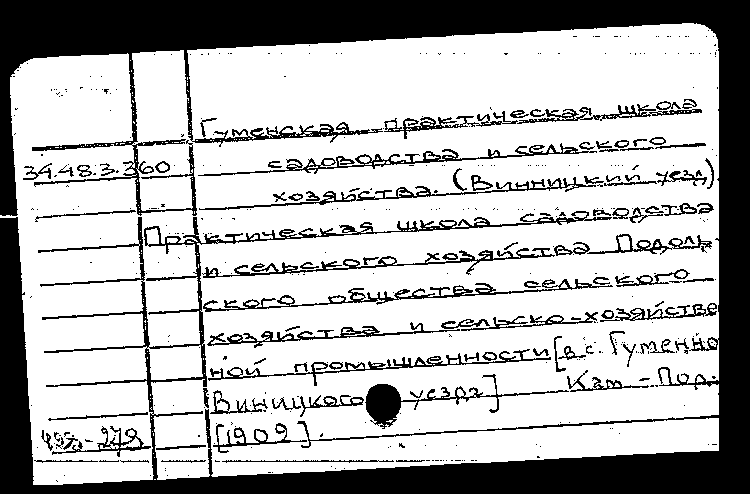 Гуменская практическая школа
34.48.3.360 садоводства и сельского
хозяйства. (Винницкий уезд)
Практическая школа садоводства
и сельского хозяйства Подоль-
ского общества сельского
хозяйства и сельско-хозяйстве
ной промышленности [в с. Гуменно
Виницкого уезда] Кам-Под.
[1909].